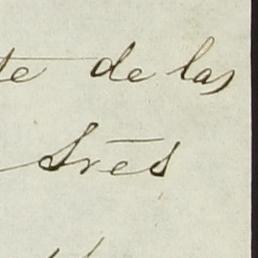 te de las
Sres